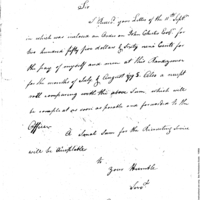 Sir
I Recd your Letter of the 11th Septr
in which was inclosed an Order on John Esqr for
two hundred fifty four dollars & Sixty nine Cents for
the pay of myself and men at this Rendezvous
for the months of July & August 1793. Also a receipt
roll comparing with the above Sum which will
be compleat as soon as possible and forwarded to the
Officer. A Small Sum for the Recruiting Service
will be Acceptable
Your Humble
Servt